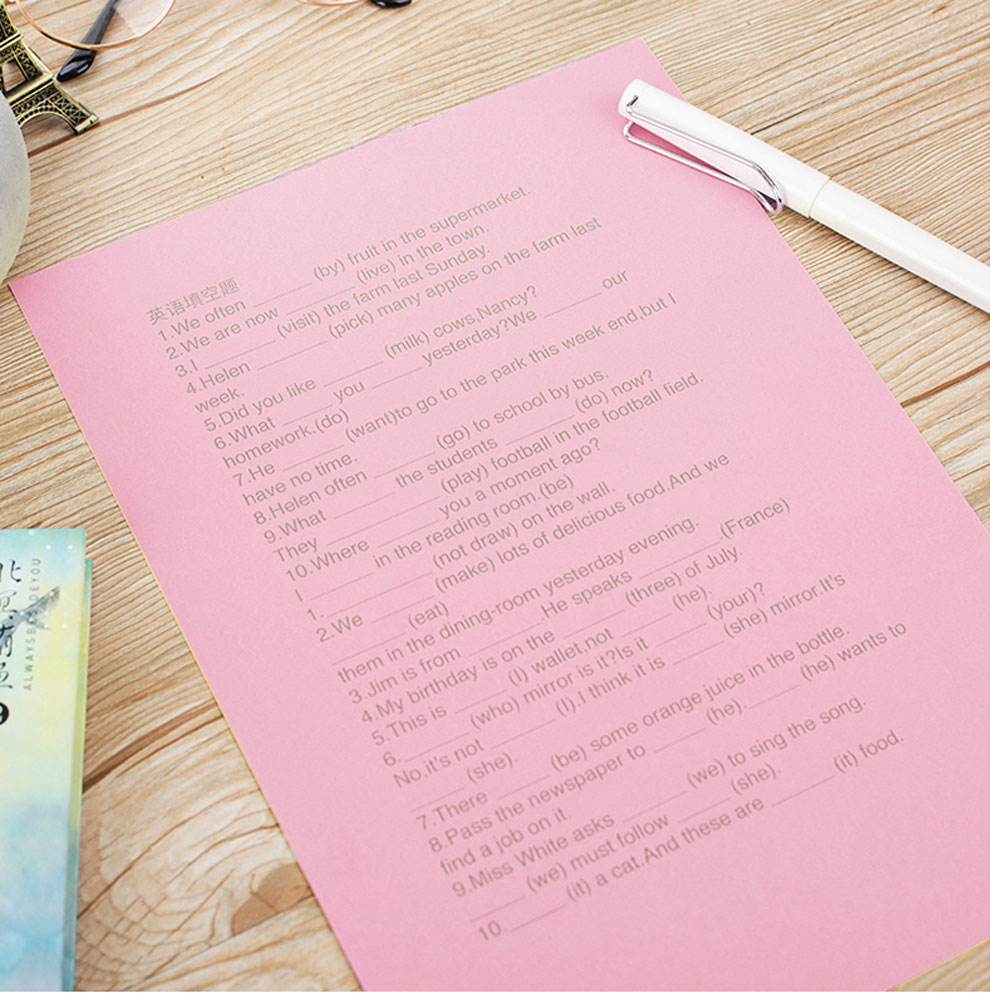 英语填空题
1.We often ______ (by) fruit in the supermarket.
2.We are now ________ (live) in the town.
3.I _______ (visit) the farm last Sunday.
4.Helen _______ (pick) many apples on the farm last
week.
5.Did you like ______ (milk) cows,Nancy?
6.What _____ you _____ yesterday?We ______ our
homework.(do)
7.He ______ (want)to go to the park this week end,but I
have no time.
8.Helen often ______ (go) to school by bus.
9.What _______ the students _______ (do) now?
They _______ (play) football in the football field.
10.Where _______ you a moment ago?
I ________ in the reading room.(be)
1.__________ (not draw) on the wall.
2.We _______ (make) lots of delicious food.And we
_______ (eat)
them in the dining-room yesterday evening.
3.Jim is from ________.He speaks ________.(France)
4.My birthday is on the ______ (three) of July.
5.This is _____ (I) wallet,not _____ (he).
6.______ (who) mirror is it?Is it ______ (your)?
No,it's not ______ (I),I think it is _____ (she) mirror.It's
_____ (she).
7.There _____ (be) some orange juice in the bottle.
8.Pass the newspaper to _____ (he)._____ (he) wants to
find a job on it.
9.Miss White asks ______ (we) to sing the song.
_____ (we) must follow _____ (she).
10._____ (it) a cat.And these are ______ (it) food.
9